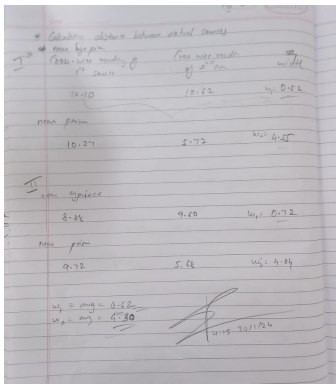 * Calculating distance between virtual sources
* near eye pin
I
Cross-wire reading of Cross wire reading width
1st source of 2nd
10.10 10.62 w₁ = 0.52
near prism
10.27 5.72 w₂ = 4.55
II
near eyepiece
8.88 9.60 w₁ = 0.72
near prism
9.72 5.68 w₂ = 4.04
w₁ = avg = 0.62
w₂ = avg = 4.30
4.15 30/1/24